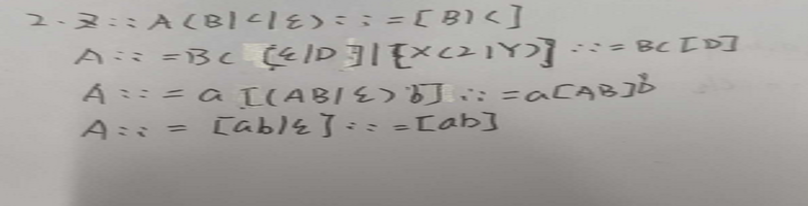 2. Z:: A(B|C|ε)::=[B|C]
A::=BC [ε/D]|[X(Z|Y)] ::=BC[D]
A::=a[(AB/ε)b] ::=a[AB]b
A::= [ab/ε]::=[ab]